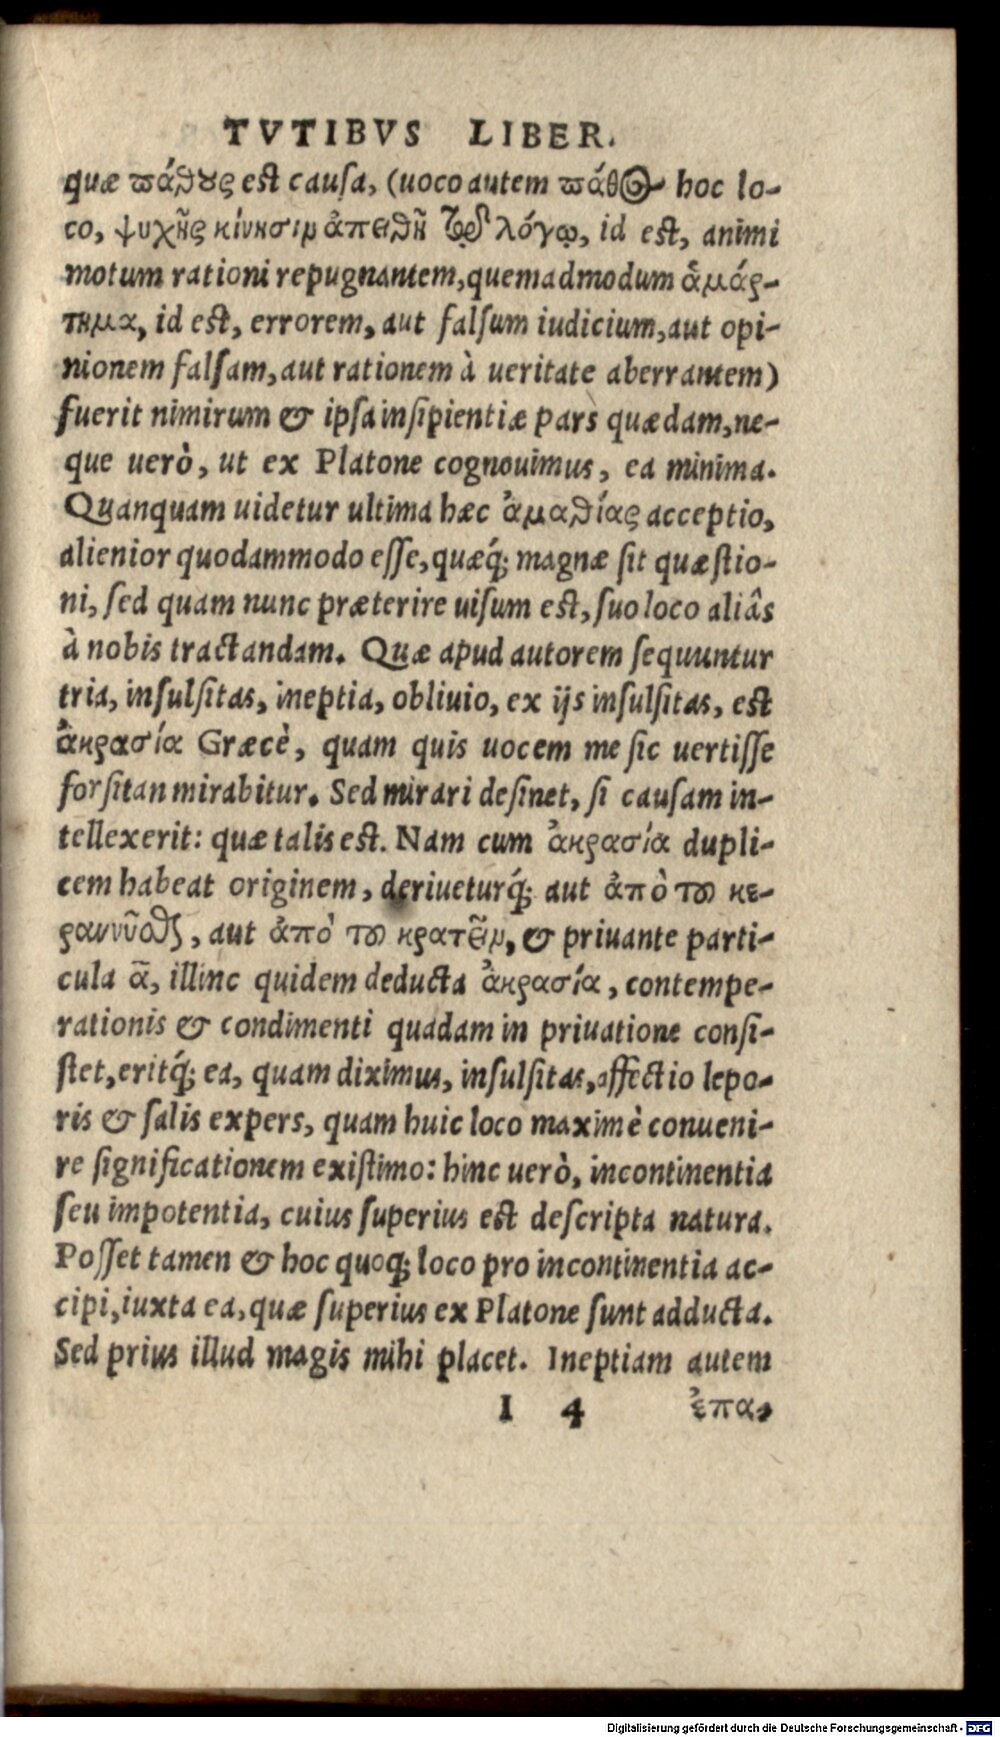 TVTIBVS LIBER.
quæ πάθους est causa, (uoco autem πάθος hoc lo-
co, ψυχῆς κίνησιν ἀπειθῆ τῷ λόγῳ, id est, animi
motum rationi repugnantem, quemadmodum ἁμάρ-
τημα, id est, errorem, aut falsum iudicium, aut opi-
nionem falsam, aut rationem à ueritate aberrantem)
fuerit nimirum & ipsa insipientiæ pars quædam, ne-
que uerò, ut ex Platone cognouimus, ea minima.
Quanquam uidetur ultima hæc ἀμαθίας acceptio,
alienior quodammodo esse, quæq́; magnæ sit quæstio-
ni, sed quam nunc præterire uisum est, suo loco aliâs
à nobis tractandam. Quæ apud autorem sequuntur
tria, insulsitas, ineptia, obliuio, ex ijs insulsitas, est
ἀκρασία Græcè, quam quis uocem me sic uertisse
forsitan mirabitur. Sed mirari desinet, si causam in-
tellexerit: quæ talis est. Nam cum ἀκρασία dupli-
cem habeat originem, deriueturq́; aut ἀπὸ τοῦ κε-
ραννῦσθαι, aut ἀπὸ τοῦ κρατεῖν, & priuante parti-
cula ᾱ, illinc quidem deducta ἀκρασία, contempe-
rationis & condimenti quadam in priuatione consi-
stet, eritq́; ea, quam diximus, insulsitas, affectio lepo-
ris & salis expers, quam huic loco maximè conueni-
re significationem existimo: hinc uerò, incontinentia
seu impotentia, cuius superius est descripta natura.
Posset tamen & hoc quoq; loco pro incontinentia ac-
cipi, iuxta ea, quæ superius ex Platone sunt adducta.
Sed prius illud magis mihi placet. Ineptiam autem
I 4 ἐπα,
Digitalisierung gefördert durch die Deutsche Forschungsgemeinschaft - DFG